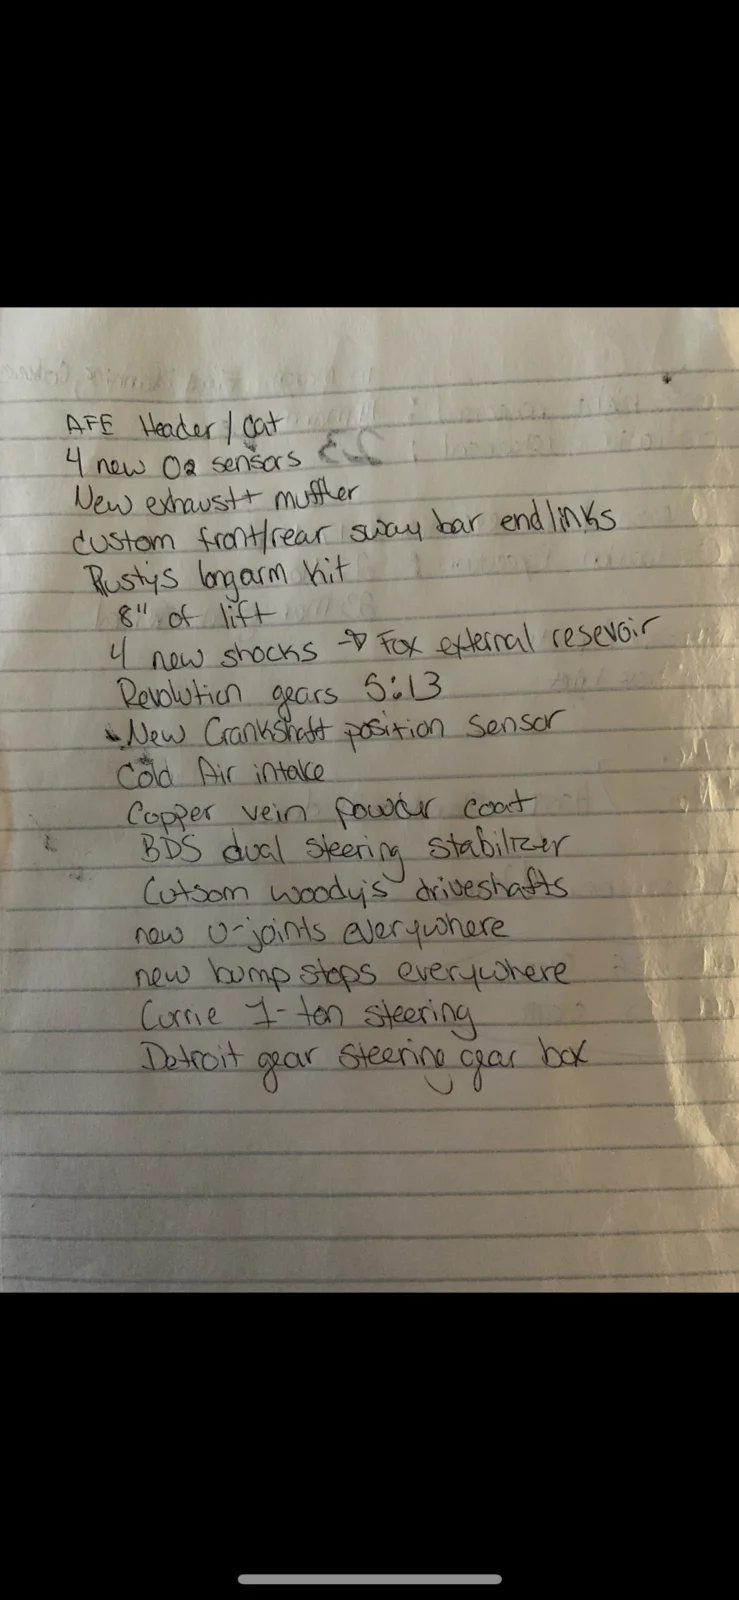 AFE Header/Cat
4 new O2 sensors
New exhaust + muffler
custom front/rear sway bar endlinks
Rustys longarm kit
8" of lift
4 new shocks → Fox external resevoir
Revolution gears 5:13
New Crankshaft position sensor
Cold Air intake
Copper vein powder coat
BDS dual steering stabilizer
Cutsom woody's driveshafts
new u-joints everywhere
new bump stops everywhere
Currie 1-ton steering
Detroit gear steering gear box